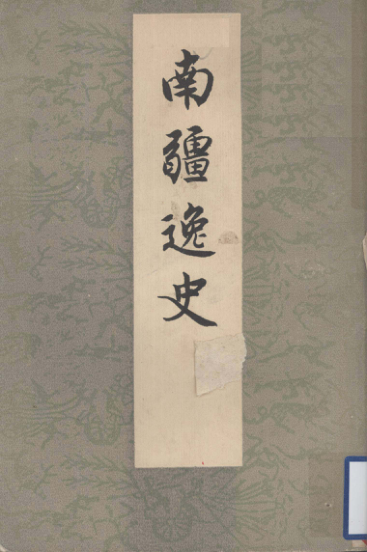 南疆逸史